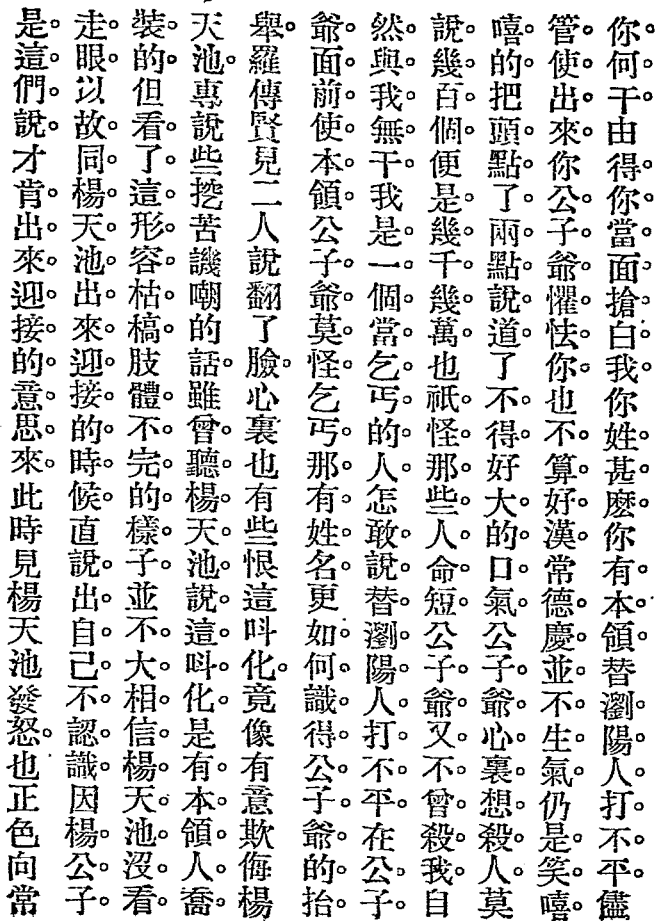 你何干由得你當面搶白我你姓甚麽你有本領替瀏陽人打不平儘
管使出來你公子爺懼怯你也不算好漢常德慶並不生氣仍是笑嘻
嘻的把頭點了兩點說道了不得好大的口氣公子爺心裏想殺人莫
說幾百個便是幾千幾萬也祇怪那些人命短公子爺又不曾殺我自
然與我無干我是一個當乞丐的人怎敢說替瀏陽人打不平在公子
爺面前使本領公子爺莫怪乞丐那有姓名更如何識得公子爺的抬
舉羅傳賢見二人說翻了臉心裏也有些恨這呌化竟像有意欺侮楊
天池專說些挖苦譏嘲的話雖曾聽楊天池說這呌化是有本領人喬
裝的但看了這形容枯槁肢體不完的樣子並不大相信楊天池沒看
走眼以故同楊天池出來迎接的時候直說出自己不認識因楊公子
是這們說才肯出來迎接的意思來此時見楊天池發怒也正色向常